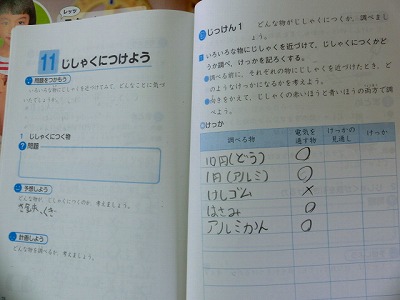 レッツ
11 じしゃくにつけよう
問題をつかもう
いろいろな物にじしゃくを近づけてみて、どんなことに気づいたでしょうか。
1 じしゃくにつく物
問題
予想しよう
どんな物が、じしゃくにつくのか、考えましょう。
計画しよう
どんな物を調べるか、考えましょう。
じっけん1 どんな物がじしゃくにつくか、調べましょう。
いろいろな物にじしゃくを近づけて、じしゃくにつくかどうか調べ、けっかを記ろくする。
調べる前に、それぞれの物にじしゃくを近づけたとき、どのようなけっかになるかを考えよう。
向きをかえて、じしゃくの赤いほうと青いほうの両方で調べよう。
けっか
調べる物 電気を通す物 けっかの見通し けっか
10円(どう) ○
1円(アルミ) ○
けしゴム ×
はさみ ○
アルミかん ○